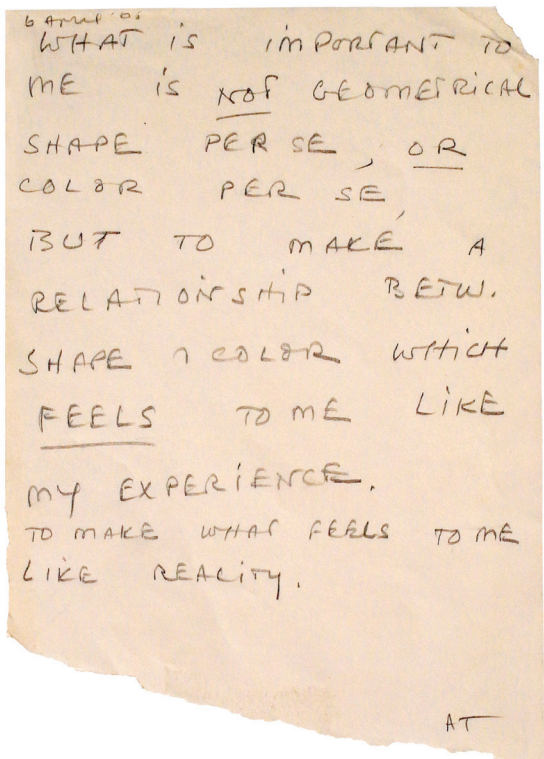 6 APRIL '65
WHAT IS IMPORTANT TO
ME IS NOT GEOMETRICAL
SHAPE PER SE, OR
COLOR PER SE,
BUT TO MAKE A
RELATIONSHIP BETW.
SHAPE & COLOR WHICH
FEELS TO ME LIKE
MY EXPERIENCE.
TO MAKE WHAT FEELS TO ME
LIKE REALITY.
AT